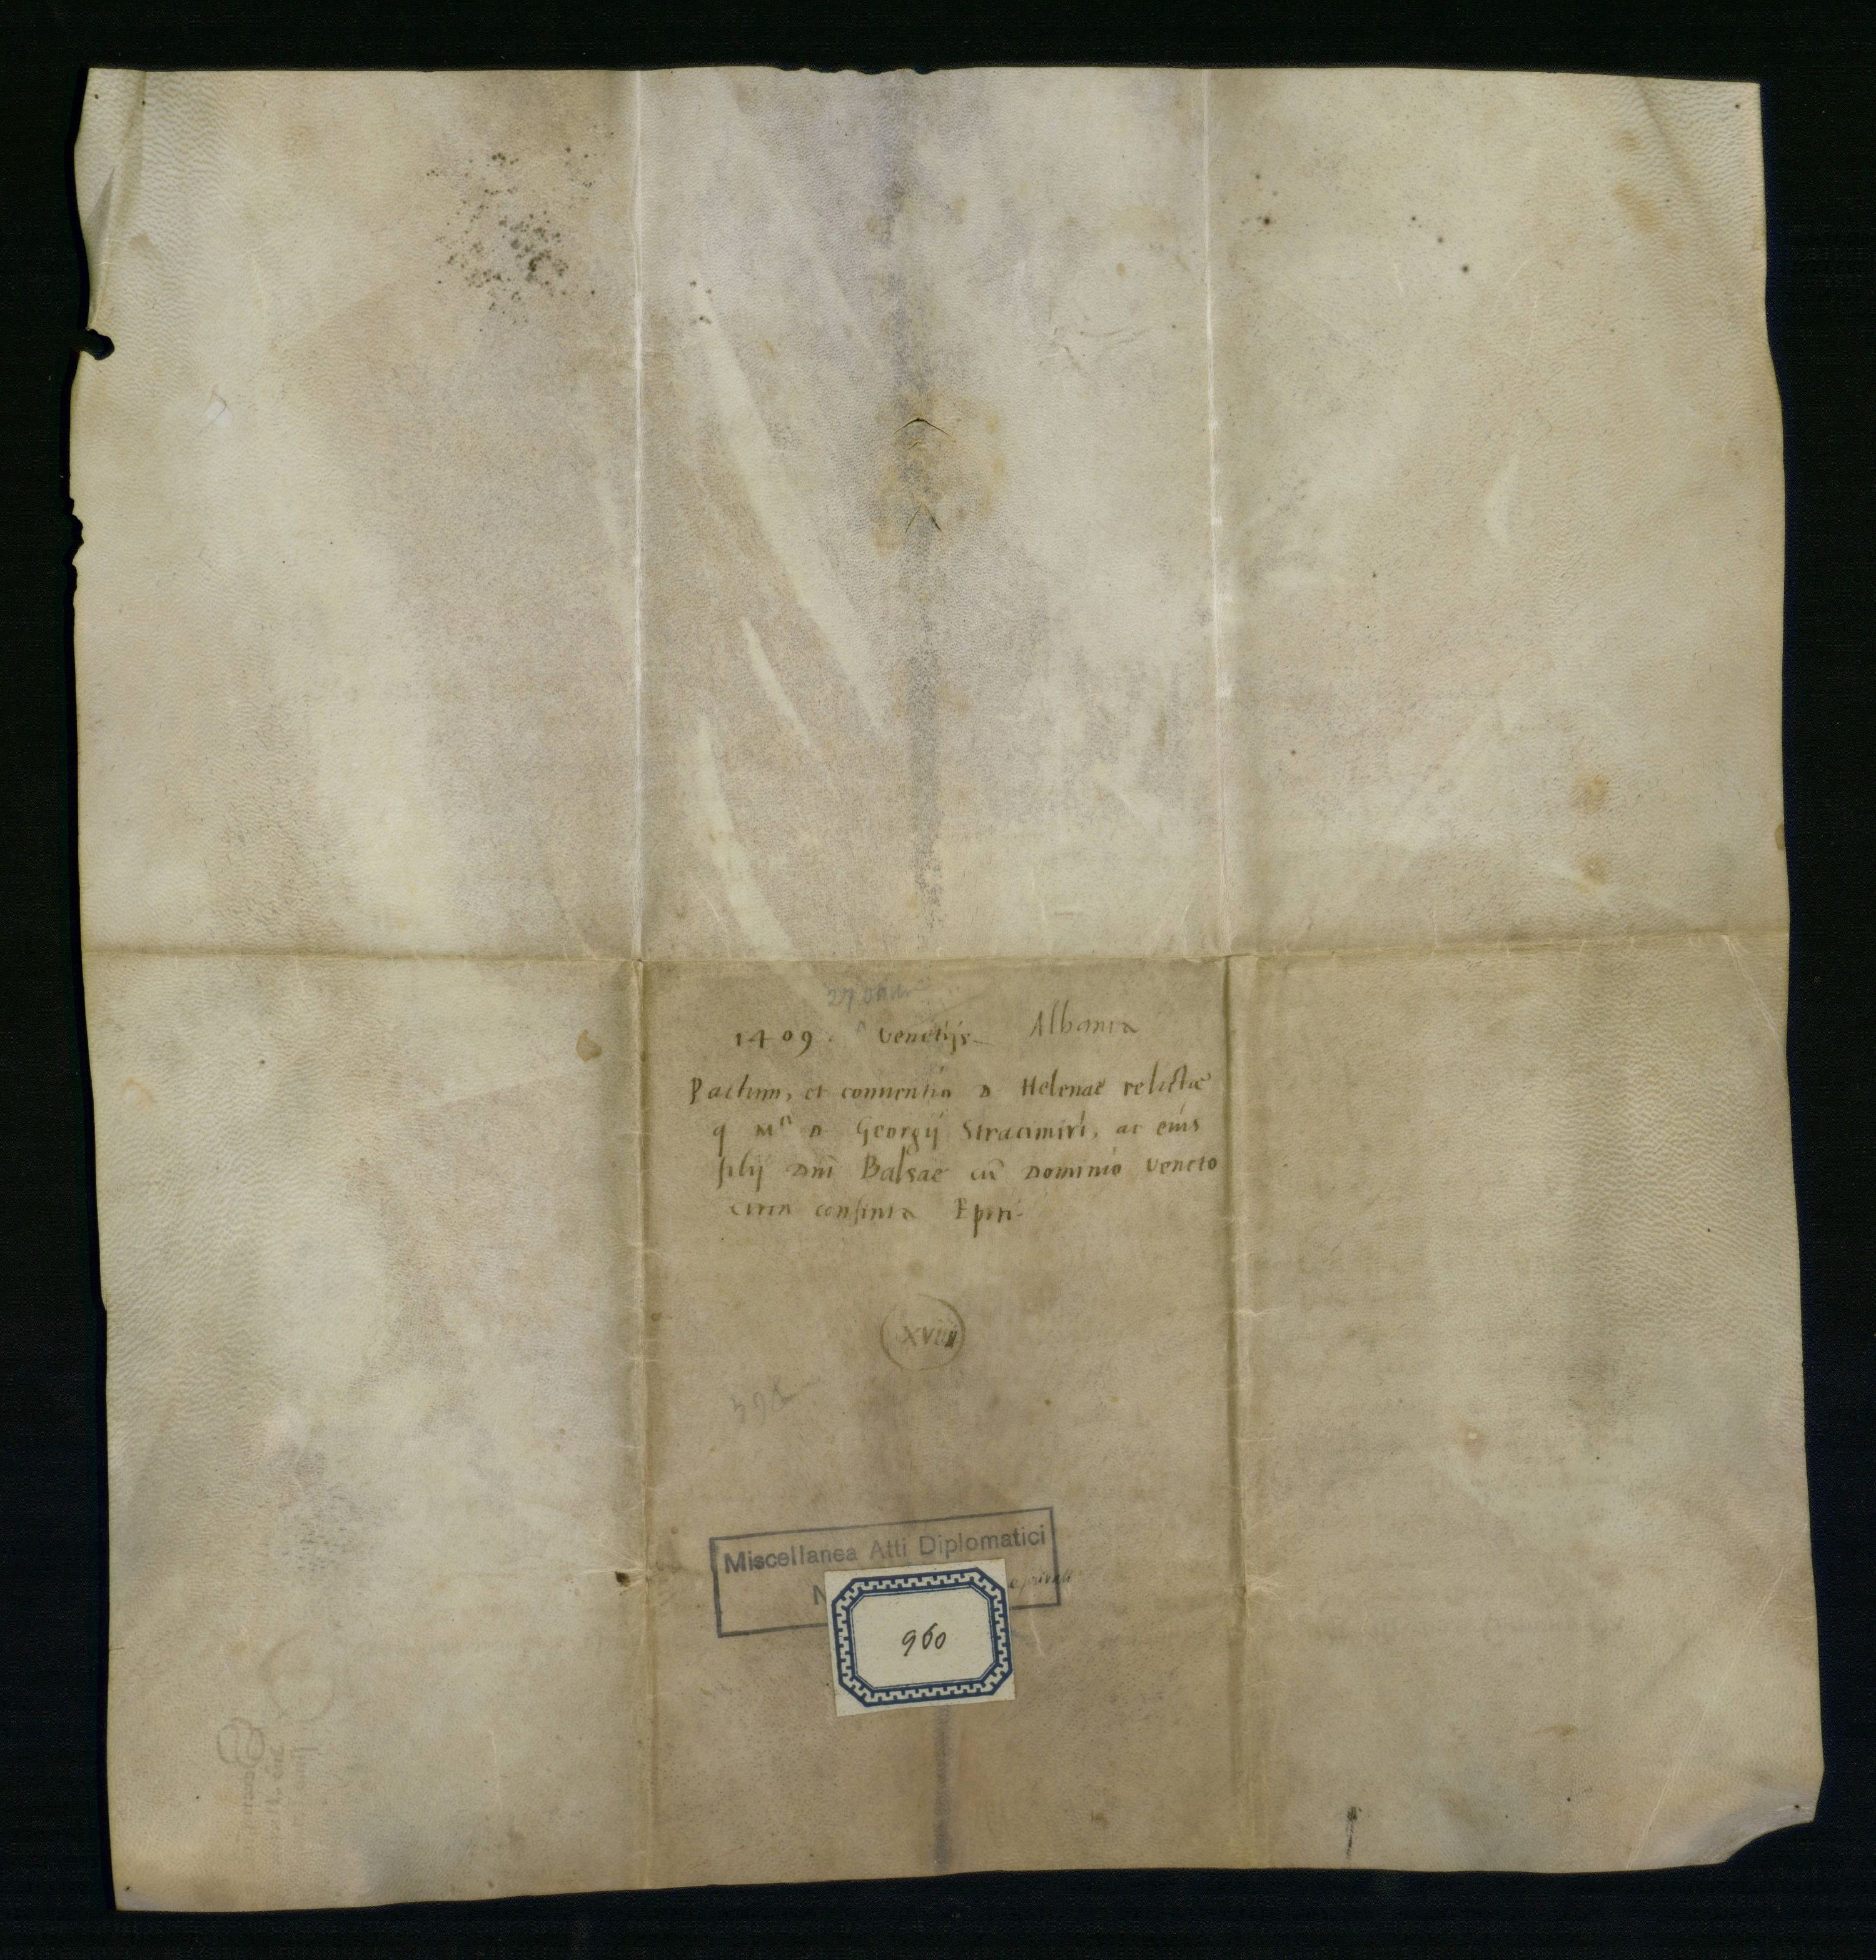 1409. Venetijs Albania
Pactum, et conuentio D Helenae relictae
q Mci D Georgij Stracimiri, ac eius
filij Dni Balsae cū Dominio Veneto
circa confinia Epiri
XVIII
Miscellanea Atti Diplomatici
N
e privati
960